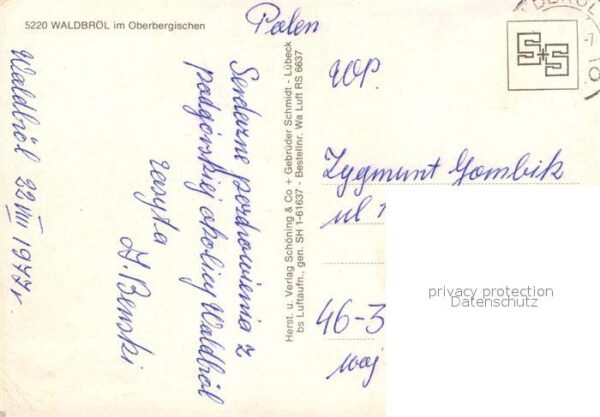 5220 WALDBRÖL im Oberbergischen
Polen
Waldbröl 22 VIII 1977 r
Serdeczne pozdrowienia z
podgórskiej okolicy Waldbröl
zasyła
Herst. u. Verlag Schöning & Co + Gebrüder Schmidt - Lübeck
bs Luftaufn., gen. SH 1-61637 - Bestellnr. Wa Luft RS 6637
WP.
Zygmunt Gombik
ul
46-3
woj
privacy protection
Datenschutz